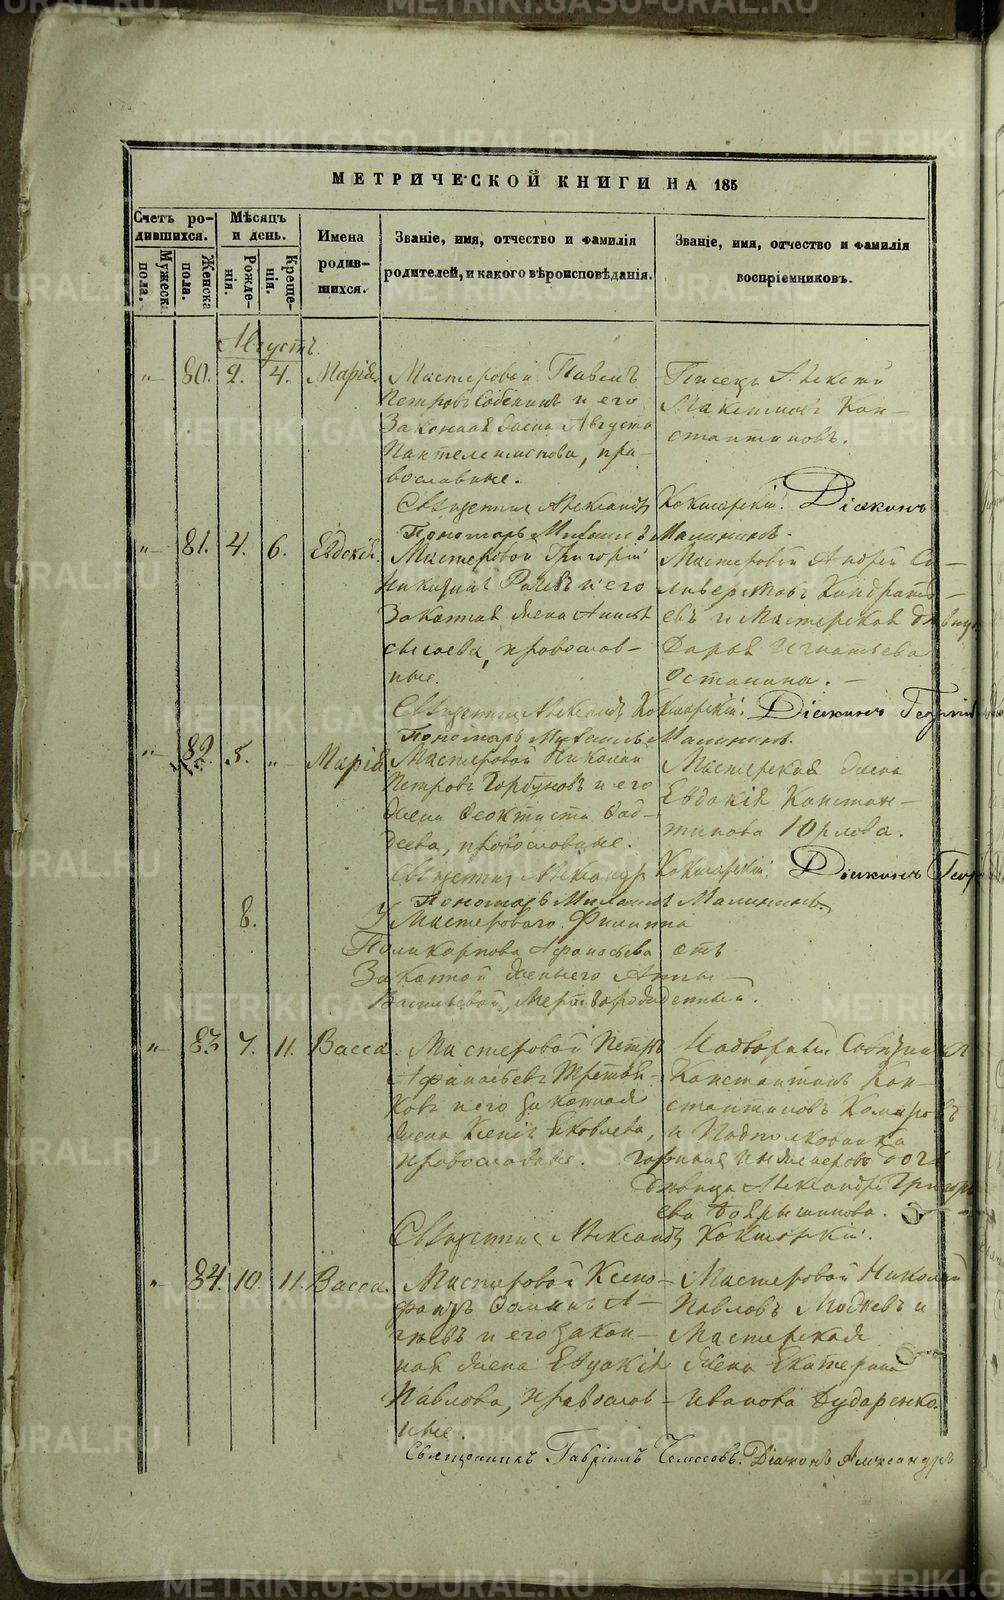 МЕТРИЧЕСКОЙ КНИГИ НА 185
Счетъ родившихся.
Мужеска пола.
Женска пола.
Мѣсяцъ и день.
Рожденія.
Крещенія.
Имена родившихся.
Званіе, имя, отчество и фамилія родителей, и какого вѣроисповѣданія.
Званіе, имя, отчество и фамилія воспріемниковъ.
Августъ.
„ 80. 2. 4. Марія.
Мастеровой Павелъ
Петровъ и его
Законная жена Августа
Пантелеимонова, пра-
вославные.
Писецъ Алексѣй
Максимовъ Кон-
стантиновъ.
Священникъ Александръ Кокшарскій. Діаконъ
Пономарь Михаилъ Малининъ.
„ 81. 4. 6. Евдокія.
Мастеровой Григорій
Никитинъ и его
Законная жена Анисья
, православ-
ные.
Мастеровой Андрей Се-
ливерстовъ Кондрать-
евъ и Мастерская дѣвица
Дарья Игнатьева
Останина.
Священникъ Александръ Кокшарскій. Діаконъ Георгій
Пономарь Михаилъ Малининъ.
„ 82. 5. „ Марія
Мастеровой Николай
Петровъ Горбуновъ и его
жена Феоктиста Фад-
деева, православные.
Мастерская жена
Евдокія Констан-
тинова Орлова.
Священникъ Александръ Кокшарскій. Діаконъ Геор
Пономарь Михаилъ Малининъ.
8.
У Мастероваго Филиппа
Поликарпова Афанасьева отъ
Законной жены его Анны
Васильевой, Мертворожденный.
„ 83. 7. 11. Васса.
Мастеровой Петръ
Афанасьевъ Третья-
ковъ и его законная
жена Ксенія Яковлева,
православные.
Надворный Совѣтникъ
Константинъ Кон-
стантиновъ Комаровъ
и Подполковника
Горныхъ Инженеровъ дочь
дѣвица Александра Григорь-
ева Бояршинова.
Священникъ Александръ Кокшарскій.
„ 84. 10. 11. Васса.
Мастеровой Ксено-
фонтъ Фоминъ А-
гѣевъ и его закон-
ная жена Евдокія
Павлова, православ-
ные.
Мастеровой Николай
Павловъ и
Мастерская
жена Екатерина
Иванова Дударенко.
Священникъ Гавріилъ Діаконъ Александръ
METRIKI.GASO-URAL.RU